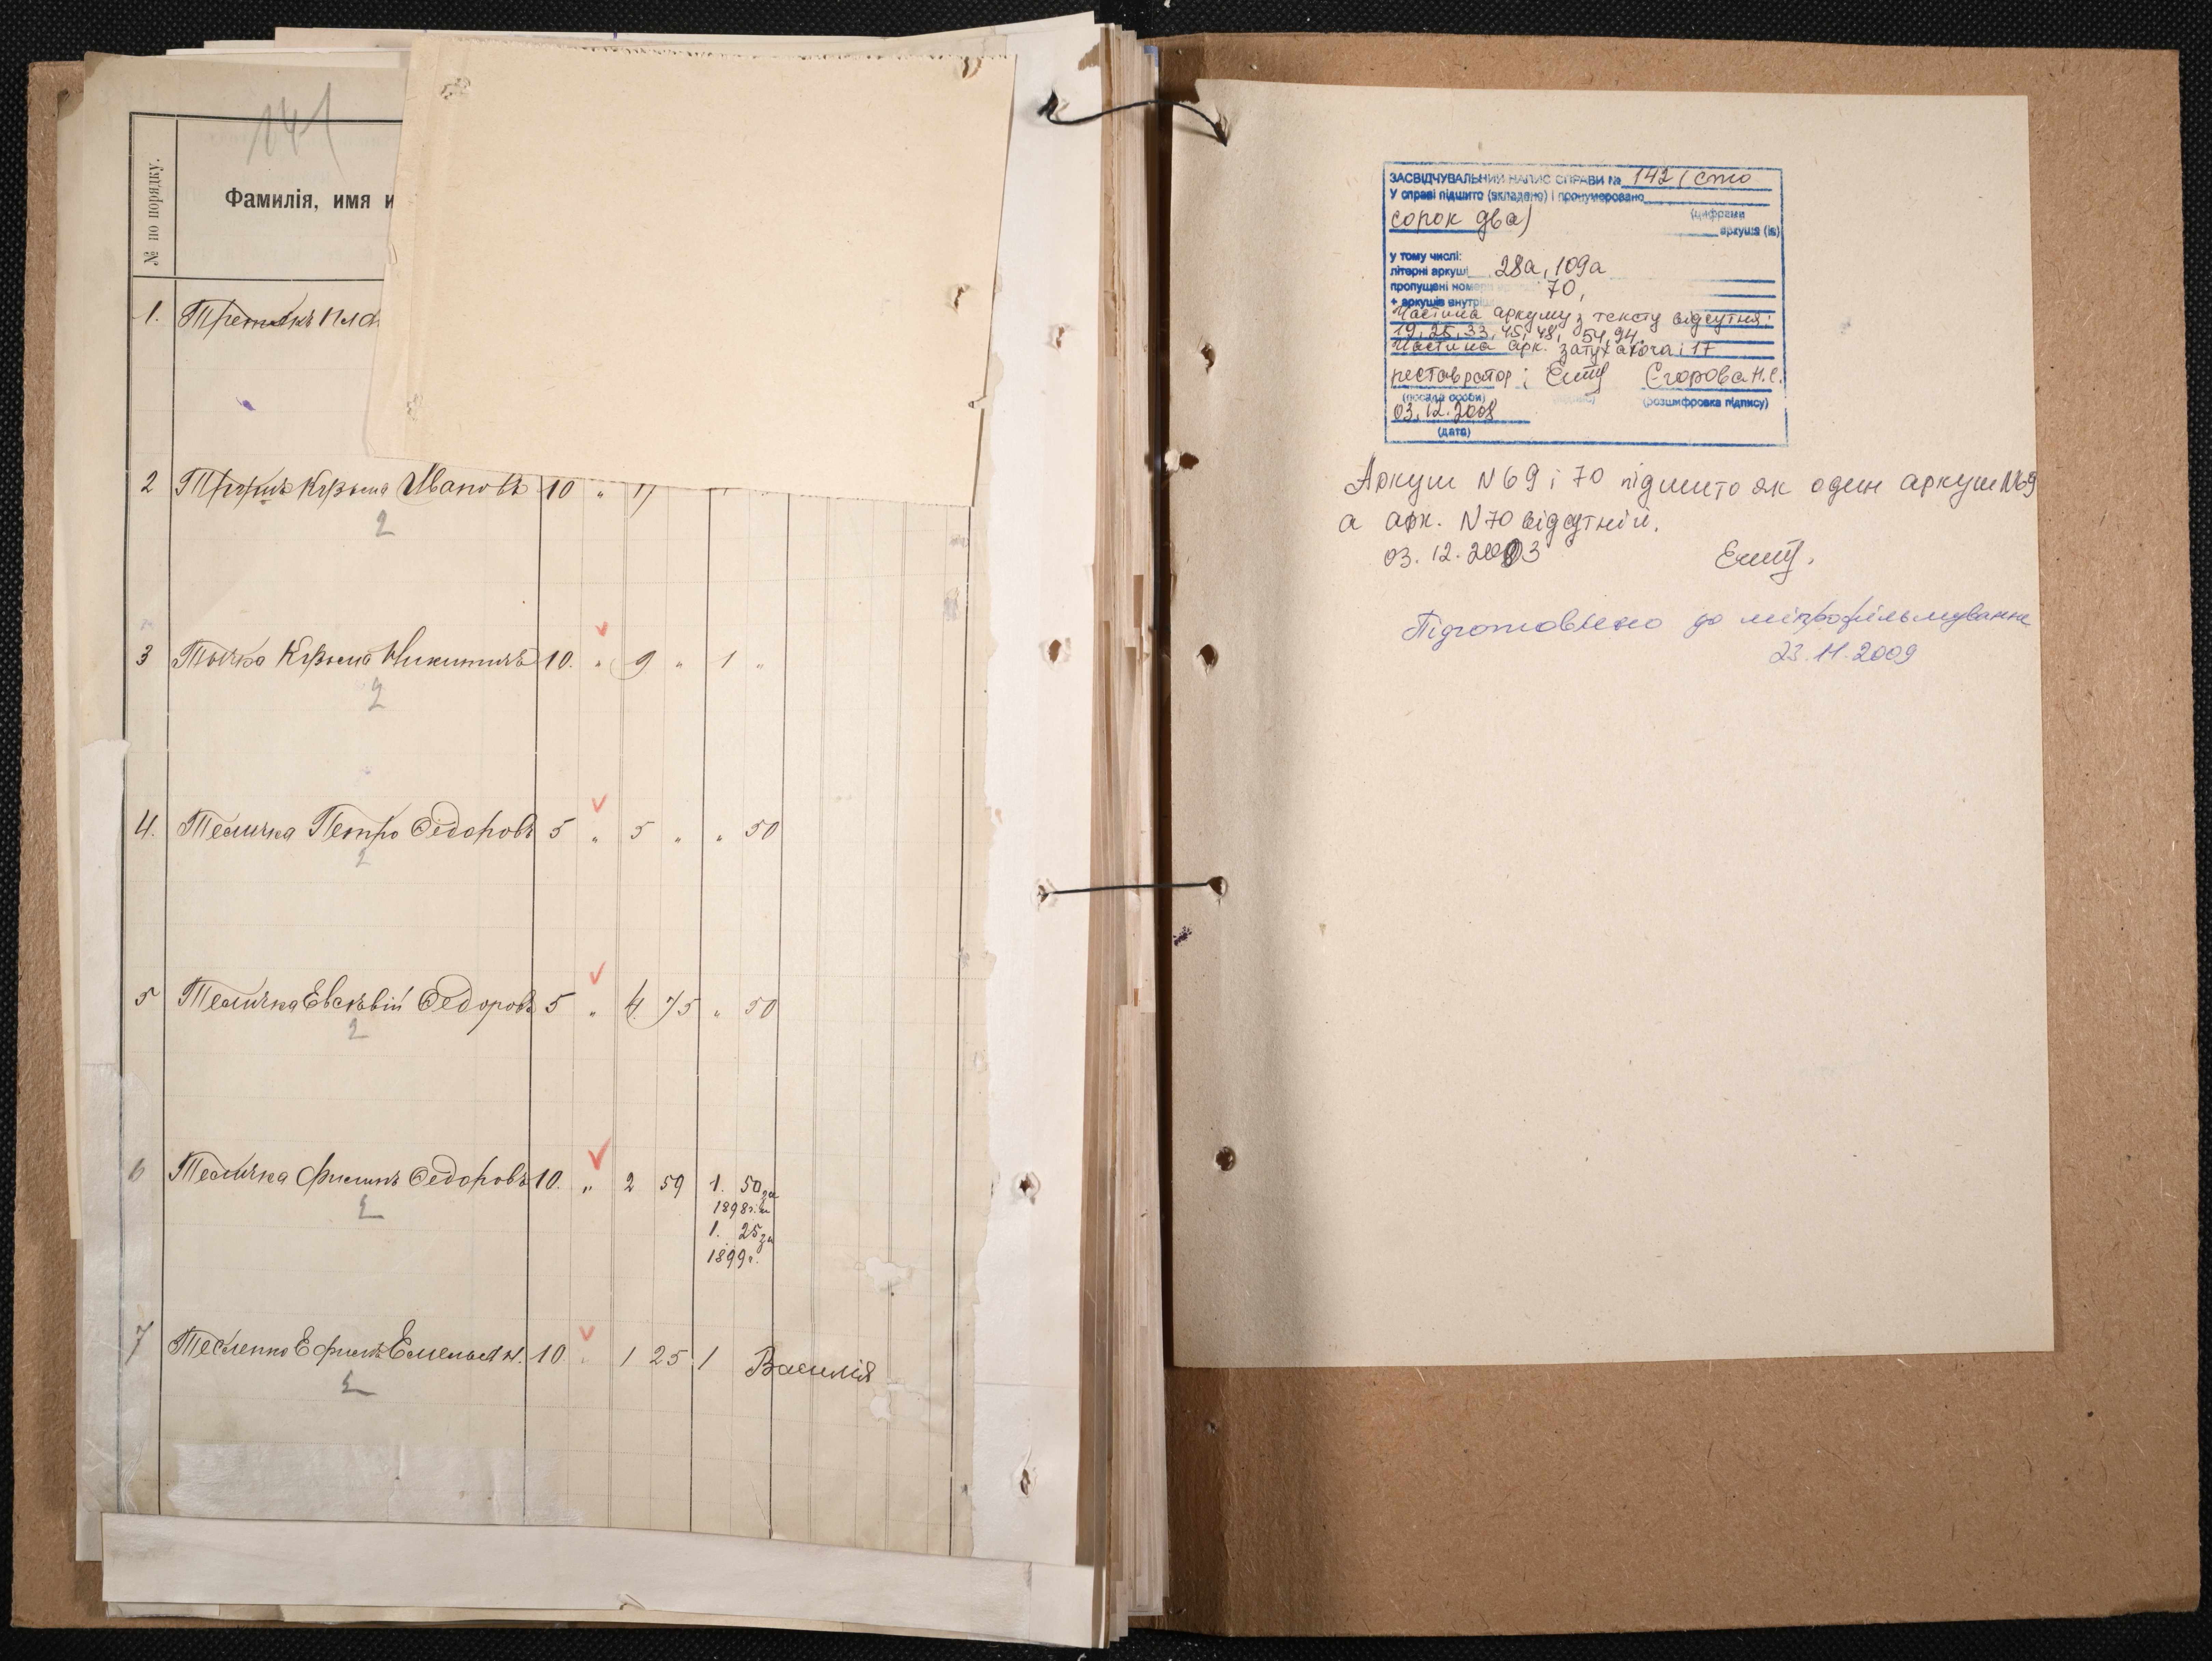 141
№ по порядку.
Фамилія, имя и
1. Третякъ
2 Кузьма Ивановъ 10 "
2
3 Тычка Кузьма Никитичъ 10. " 9 " 1 "
2
4. Теличка Петро Ѳедоровъ 5 " 5 " " 50
2
5 Теличка Евсѣвій Ѳедоровъ 5 " 4 75 " 50
2
6 Теличка Филипъ Ѳедоровъ 10. " 2 59 1. 50 за
1898г. и
1. 25 за
1899г.
2
7 Тесленко Ефимъ Емельян. 10. " 1 25 1 Василія
2
ЗАСВІДЧУВАЛЬНИЙ НАПИС СПРАВИ № 142 (сто
У справі підшито (вкладено) і пронумеровано
сорок два)
(цифрами
аркуша (ів)
у тому числі:
літерні аркуші 28а, 109а
пропущені номери 70,
+ аркушів внутріш
Частина аркушу з тексту відсутня:
19, 25, 33, 45, 48, 54, 94.
Частина арк. 17
реставратор: Єгорова Н.С.
(посада особи) (розшифровка підпису)
03.12.2008
(дата)
Аркуш N 69 і 70 підшито як один аркуш N69
а арк. N 70 відсутній.
03.12.2003
Підготовлено до мікрофільмування
23.11.2009